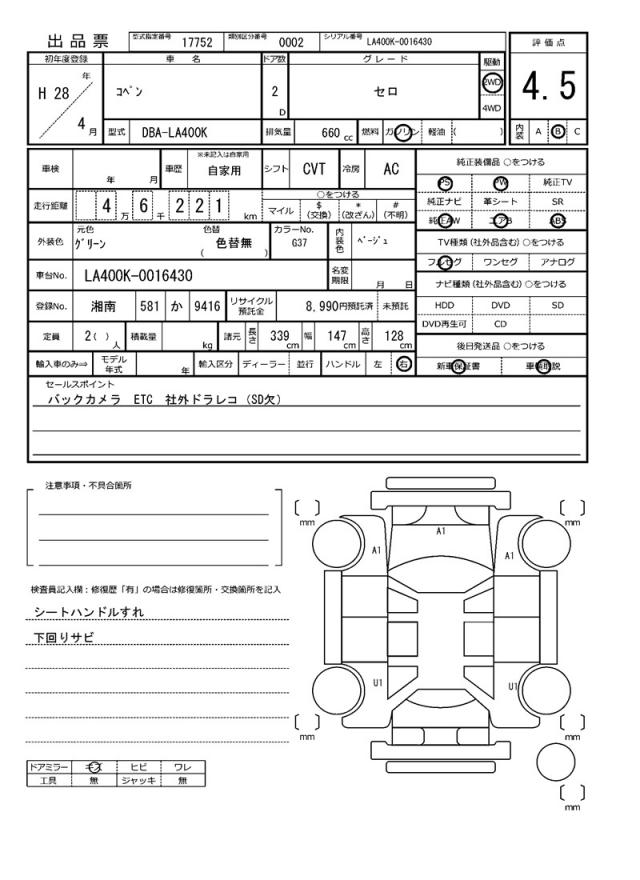 出品票 型式指定番号 17752 類別区分番号 0002 シリアル番号 LA400K-0016430 評価点
初年度登録 車名 ドア数 グレード 駆動
H 28 年 4 月 コペン 2 D セロ 2WD 4WD 4.5
型式 DBA-LA400K 排気量 660 cc 燃料 ガソリン 軽油 ( ) 内装 A B C
車検 年 月 車歴 ※未記入は自家用 自家用 シフト CVT 冷房 AC 純正装備品 ○をつける
PS PW 純正TV
走行距離 4 万 6 千 2 2 1 km ○をつける 純正ナビ 革シート SR
マイル $ (交換) * (改ざん) # (不明) 純正AW エアB ABS
外装色 元色 グリーン 色替 ( 色替無 ) カラーNo. G37 内装色 ベージュ TV種類 (社外品含む) ○をつける
フルセグ ワンセグ アナログ
車台No. LA400K-0016430 名変期限 月 日 ナビ種類 (社外品含む) ○をつける
登録No. 湘南 581 か 9416 リサイクル預託金 8,990円預託済 未預託 HDD DVD SD
DVD再生可 CD
定員 2( ) 人 積載量 kg 諸元 長さ 339 cm 幅 147 cm 高さ 128 cm 後日発送品 ○をつける
輸入車のみ⇒ モデル年式 年 輸入区分 ディーラー 並行 ハンドル 左 右 新車保証書 車輌取説
セールスポイント
バックカメラ ETC 社外ドラレコ (SD欠)
注意事項・不具合箇所
mm mm
A1
A1 A1
検査員記入欄：修復歴「有」の場合は修復箇所・交換箇所を記入
シートハンドルすれ
下回りサビ
U1 U1
mm mm
ドアミラー キズ ヒビ ワレ
工具 無 ジャッキ 無
mm